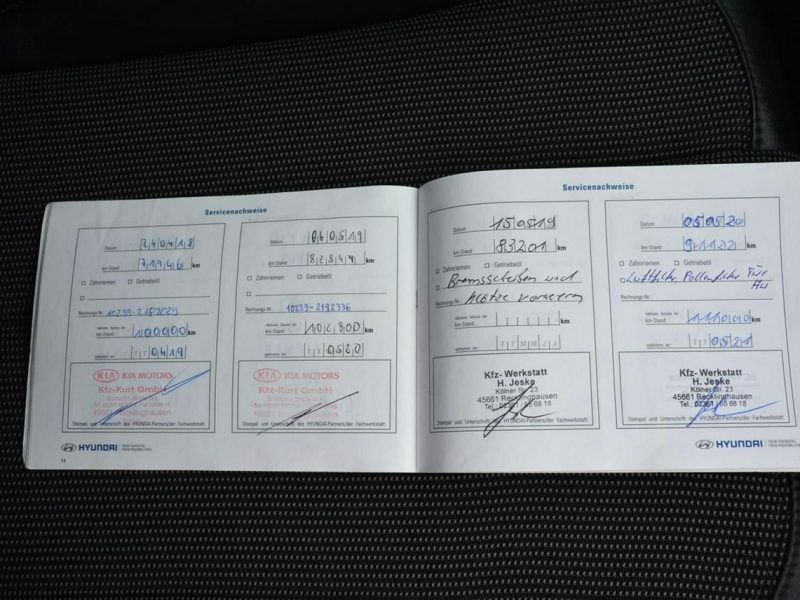 Servicenachweise
Datum: 240418
km-Stand: 71946 km
Zahnriemen Getriebeöl
Rechnungs-Nr.: 10239-2182029
nächste Service bei
km-Stand: 100000 km
spätestens am: TT 0419
KIA KIA MOTORS
Kfz-Kurt GmbH
45661 Recklinghausen
Stempel und Unterschrift des HYUNDAI-Partners/der Fachwerkstatt
Datum: 060519
km-Stand: 82847 km
Zahnriemen Getriebeöl
Rechnungs-Nr.: 10239-2192336
nächste Service bei
km-Stand: 102800 km
spätestens am: TT 0520
KIA KIA MOTORS
Kfz-Kurt GmbH
45661 Recklinghausen
Stempel und Unterschrift des HYUNDAI-Partners/der Fachwerkstatt
HYUNDAI NEW THINKING. NEW POSSIBILITIES.
Servicenachweise
Datum: 150519
km-Stand: 83201 km
Zahnriemen Getriebeöl
Bremsscheiben und
Rechnungs-Nr.: Klötze vorne
nächste Service bei
km-Stand: km
spätestens am: TTMMJJ
Kfz- Werkstatt
H. Jeske
Kölner Str. 23
45661 Recklinghausen
Tel.: 02361 / 65 68 18
Stempel und Unterschrift des HYUNDAI-Partners/der Fachwerkstatt
Datum: 050520
km-Stand: 91122 km
Zahnriemen Getriebeöl
Luftfilter Pollenfilter
Rechnungs-Nr.:
nächste Service bei
km-Stand: 111000 km
spätestens am: TT 0521
Kfz- Werkstatt
H. Jeske
Kölner Str. 23
45661 Recklinghausen
Tel.: 02361 / 65 68 18
Stempel und Unterschrift des HYUNDAI-Partners/der Fachwerkstatt
HYUNDAI NEW THINKING. NEW POSSIBILITIES.